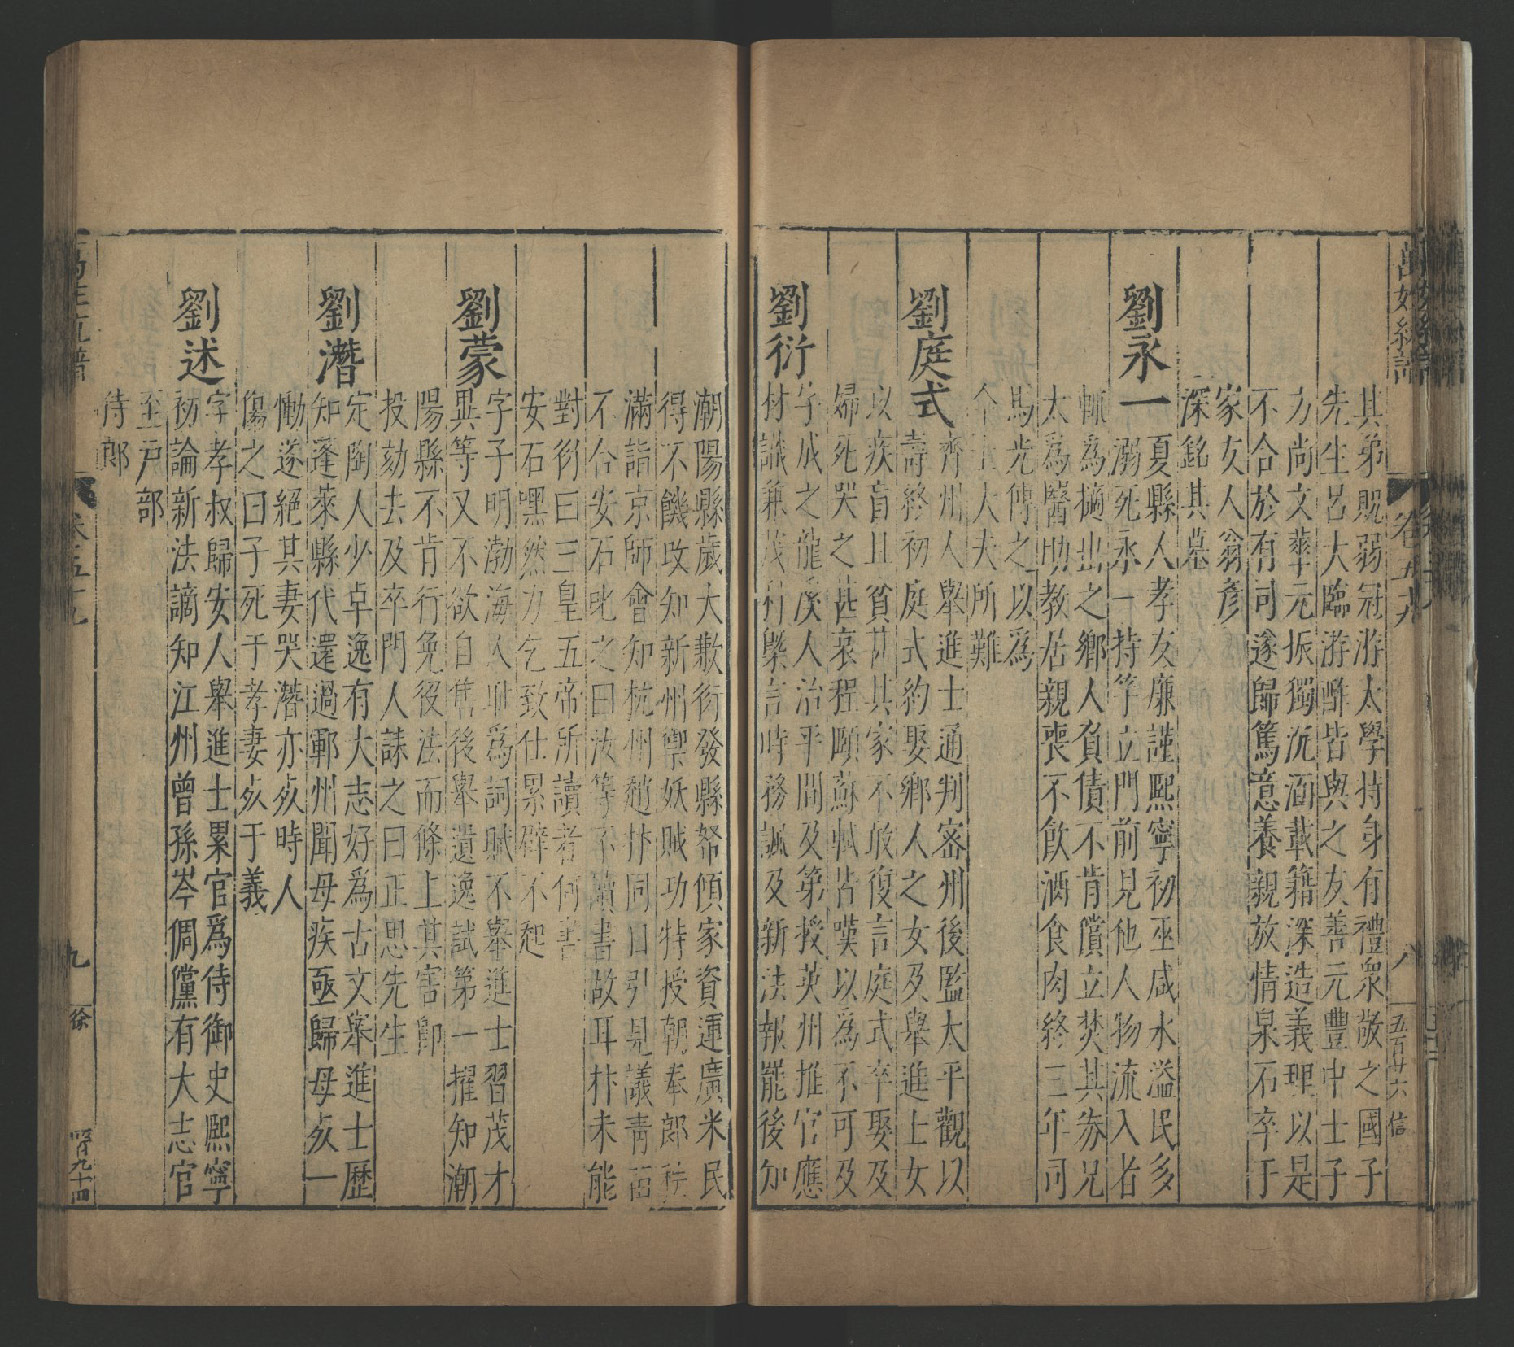 萬姓統譜
卷五十九
八
五百廿六
信
其弟貺弱冠游太學持身有禮衆敬之國子
先生呂大臨游酢皆與之友善元豐中士子
方尚文華元振獨沉涵載籍深造義理以是
不合於有司遂歸篤意養親放情泉石卒于
家友人翁彥
深銘其墓
劉永一
夏縣人孝友廉謹熙寧初巫咸水溢民多
溺死永一持竿立門前見他人物流入者
輒爲擿出之鄉人負債不肯償立焚其券兄
太爲醫助教居親喪不飲酒食肉終三年司
馬光傳之以爲
今士大夫所難
劉庭式
齊州人舉進士通判密州後監太平觀以
壽終初庭式約娶鄉人之女及舉進士女
以疾盲且貧甚其家不敢復言庭式卒娶及
婦死哭之甚哀程頤蘇軾皆嘆以爲不可及
劉衍
字成之龍溪人治平間及第授英州推官應
材識兼茂科槩言時務諷及新法報罷後知
潮陽縣歲大歉衍發縣帑傾家資運廣米民
得不饑攺知新州禦妖賊功特授朝奉郎秩
滿詣京師會知杭州趙抃同日引見議青苗
不合安石叱之曰汝等不讀書故耳抃未能
對衍曰三皇五帝所讀者何書
安石嘿然力乞致仕累辟不起
劉蒙
字子明渤海人耻爲詞賦不舉進士習茂才
異等又不欲自售後舉遺逸試第一擢知潮
陽縣不肯行免役法而條上其害卽
投劾去及卒門人誄之曰正思先生
劉潛
定陶人少卓逸有大志好爲古文舉進士歷
知蓬萊縣代還過鄆州聞母疾亟歸母歿一
慟遂絕其妻哭潛亦歿時人
傷之曰子死于孝妻歿于義
劉述
字孝叔歸安人舉進士累官爲侍御史熙寧
初論新法謫知江州曾孫岑倜儻有大志官
至戸部
侍郎
九
徐